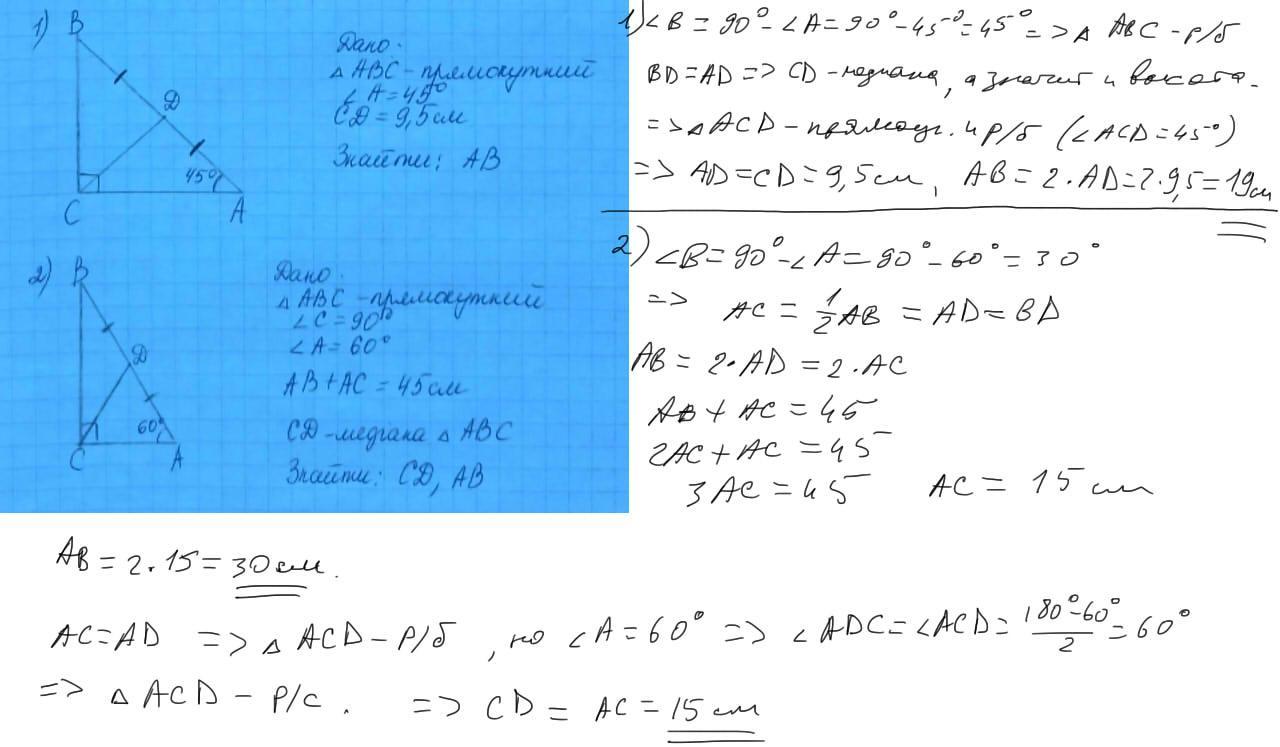 1)
B
D
45°
C
A
Дано:
△ABC – прямокутний
∠A = 45°
CD = 9,5 см
Знайти: AB
2)
B
D
60°
C
A
Дано:
△ABC – прямокутний
∠C = 90°
∠A = 60°
AB + AC = 45 см
CD – медіана △ABC
Знайти: CD, AB
1) ∠B = 90° – ∠A = 90° – 45° = 45° => △ ABC – р/б
BD = AD => CD – медиана, а значит и высота.
=> △ACD – прямоуг. и р/б (∠ACD = 45°)
=> AD = CD = 9,5 см, AB = 2·AD = 2·9,5 = 19 см
2) ∠B = 90° – ∠A = 90° – 60° = 30°
=> AC = 1/2 AB = AD = BD
AB = 2·AD = 2·AC
AB + AC = 45
2AC + AC = 45
3AC = 45 AC = 15 см
AB = 2·15 = 30 см.
AC = AD => △ ACD – р/б, но ∠A = 60° => ∠ADC = ∠ACD = (180° – 60°)/2 = 60°
=> △ ACD – р/с. => CD = AC = 15 см